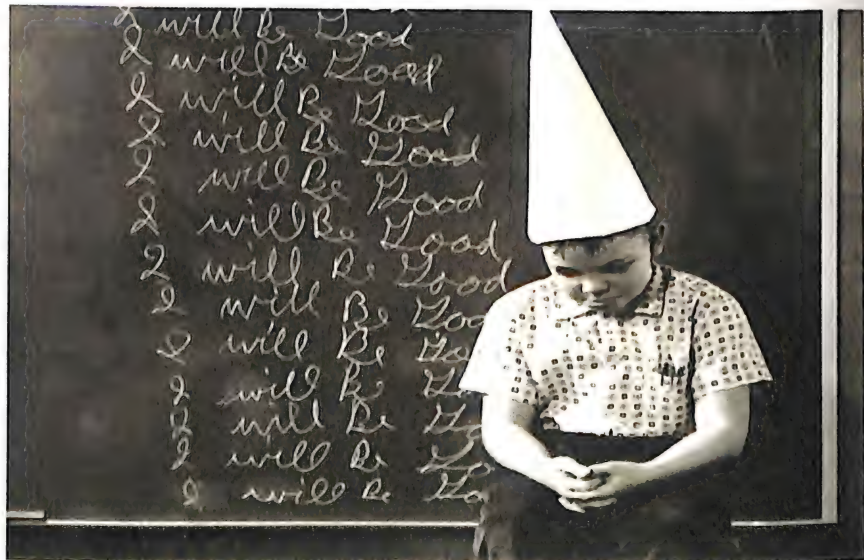 I will Be Good
I will Be Good
I will Be Good
I will Be Good
I will Be Good
I will Be Good
I will Be Good
I will Be Goo
I will Be Go
I will Be G
I will Be Go
I will Be Go
I will Be Go